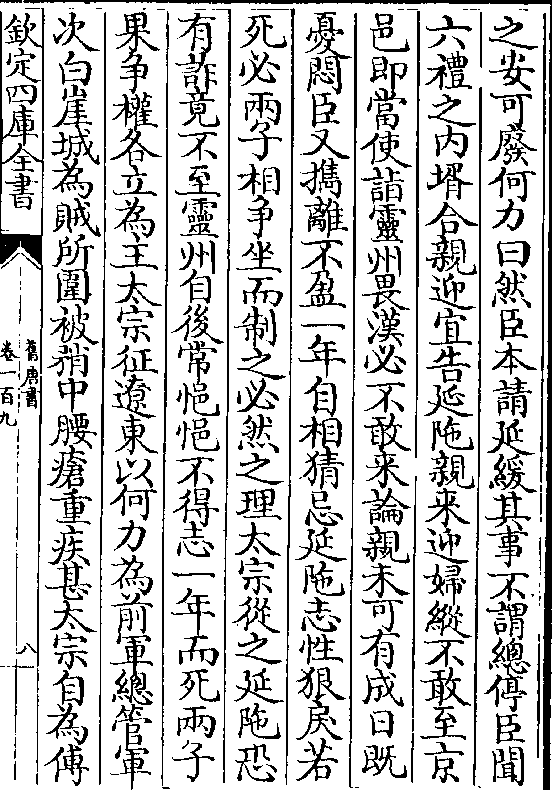 之安可廢何力曰然臣本請延緩其事不謂總停臣聞
六禮之内壻合親迎宜告延陁親来迎婦縱不敢至京
邑即當使詣靈州畏漢必不敢来論親未可有成日既
憂悶臣又攜離不盈一年自相猜忌延陁志性狠戾若
死必兩子相爭坐而制之必然之理太宗從之延陁恐
有詐竟不至靈州自後常悒悒不得志一年而死兩子
果爭權各立為主太宗征遼東以何力為前軍總管軍
次白崖城為賊所圍被矟中腰瘡重疾甚太宗自為傅
欽定四庫全書
舊唐書
卷一百九
八